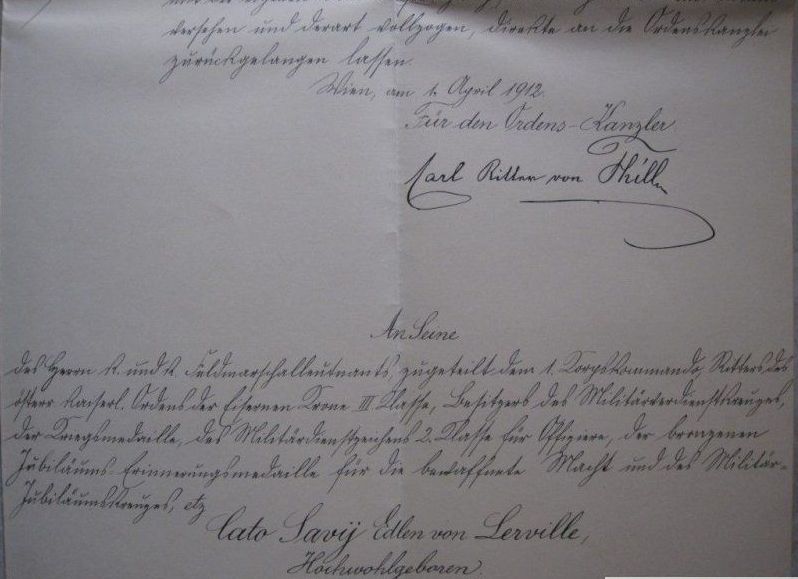 versehen und derart vollzogen, direkte an die Ordenskanzlei
zurückgelangen lassen.
Wien, am 1. April 1912.
Für den Ordens-Kanzler
Carl Ritter von
An Seine
des Herrn K. und K. Feldmarschalleutnants, zugeteilt dem 1. Korpskommando, Ritters des
österr. kaiserl. Ordens der Eisernen Krone III Classe, Besitzers des Militärverdienstkreuzes,
der Kriegsmedaille, des Militärdienstzeichens 2. Classe für Offiziere, der bronzenen
Jubiläums-Erinnerungsmedaille für die bewaffnete Macht und des Militär-
Jubiläumskreuzes, etz
Cato Savij Edlen von Lerville,
Hochwohlgeboren.